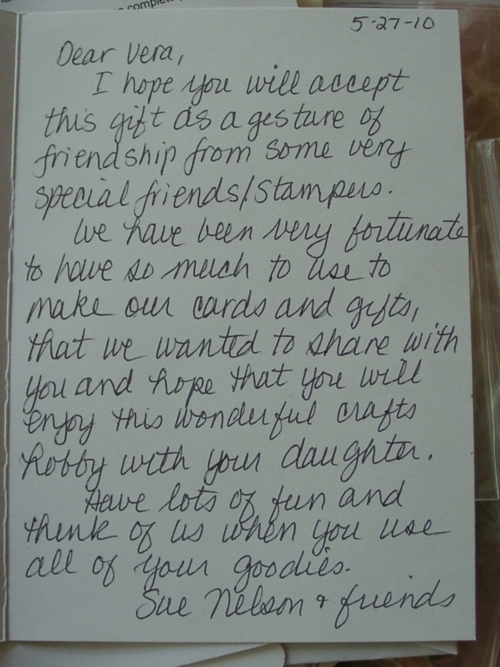 complete
5-27-10
Dear Vera,
I hope you will accept
this gift as a gesture of
friendship from some very
special friends/stampers.
We have been very fortunate
to have so much to use to
make our cards and gifts,
that we wanted to share with
you and hope that you will
enjoy this wonderful crafts
hobby with your daughter.
Have lots of fun and
think of us when you use
all of your goodies.
Sue Nelson & friends